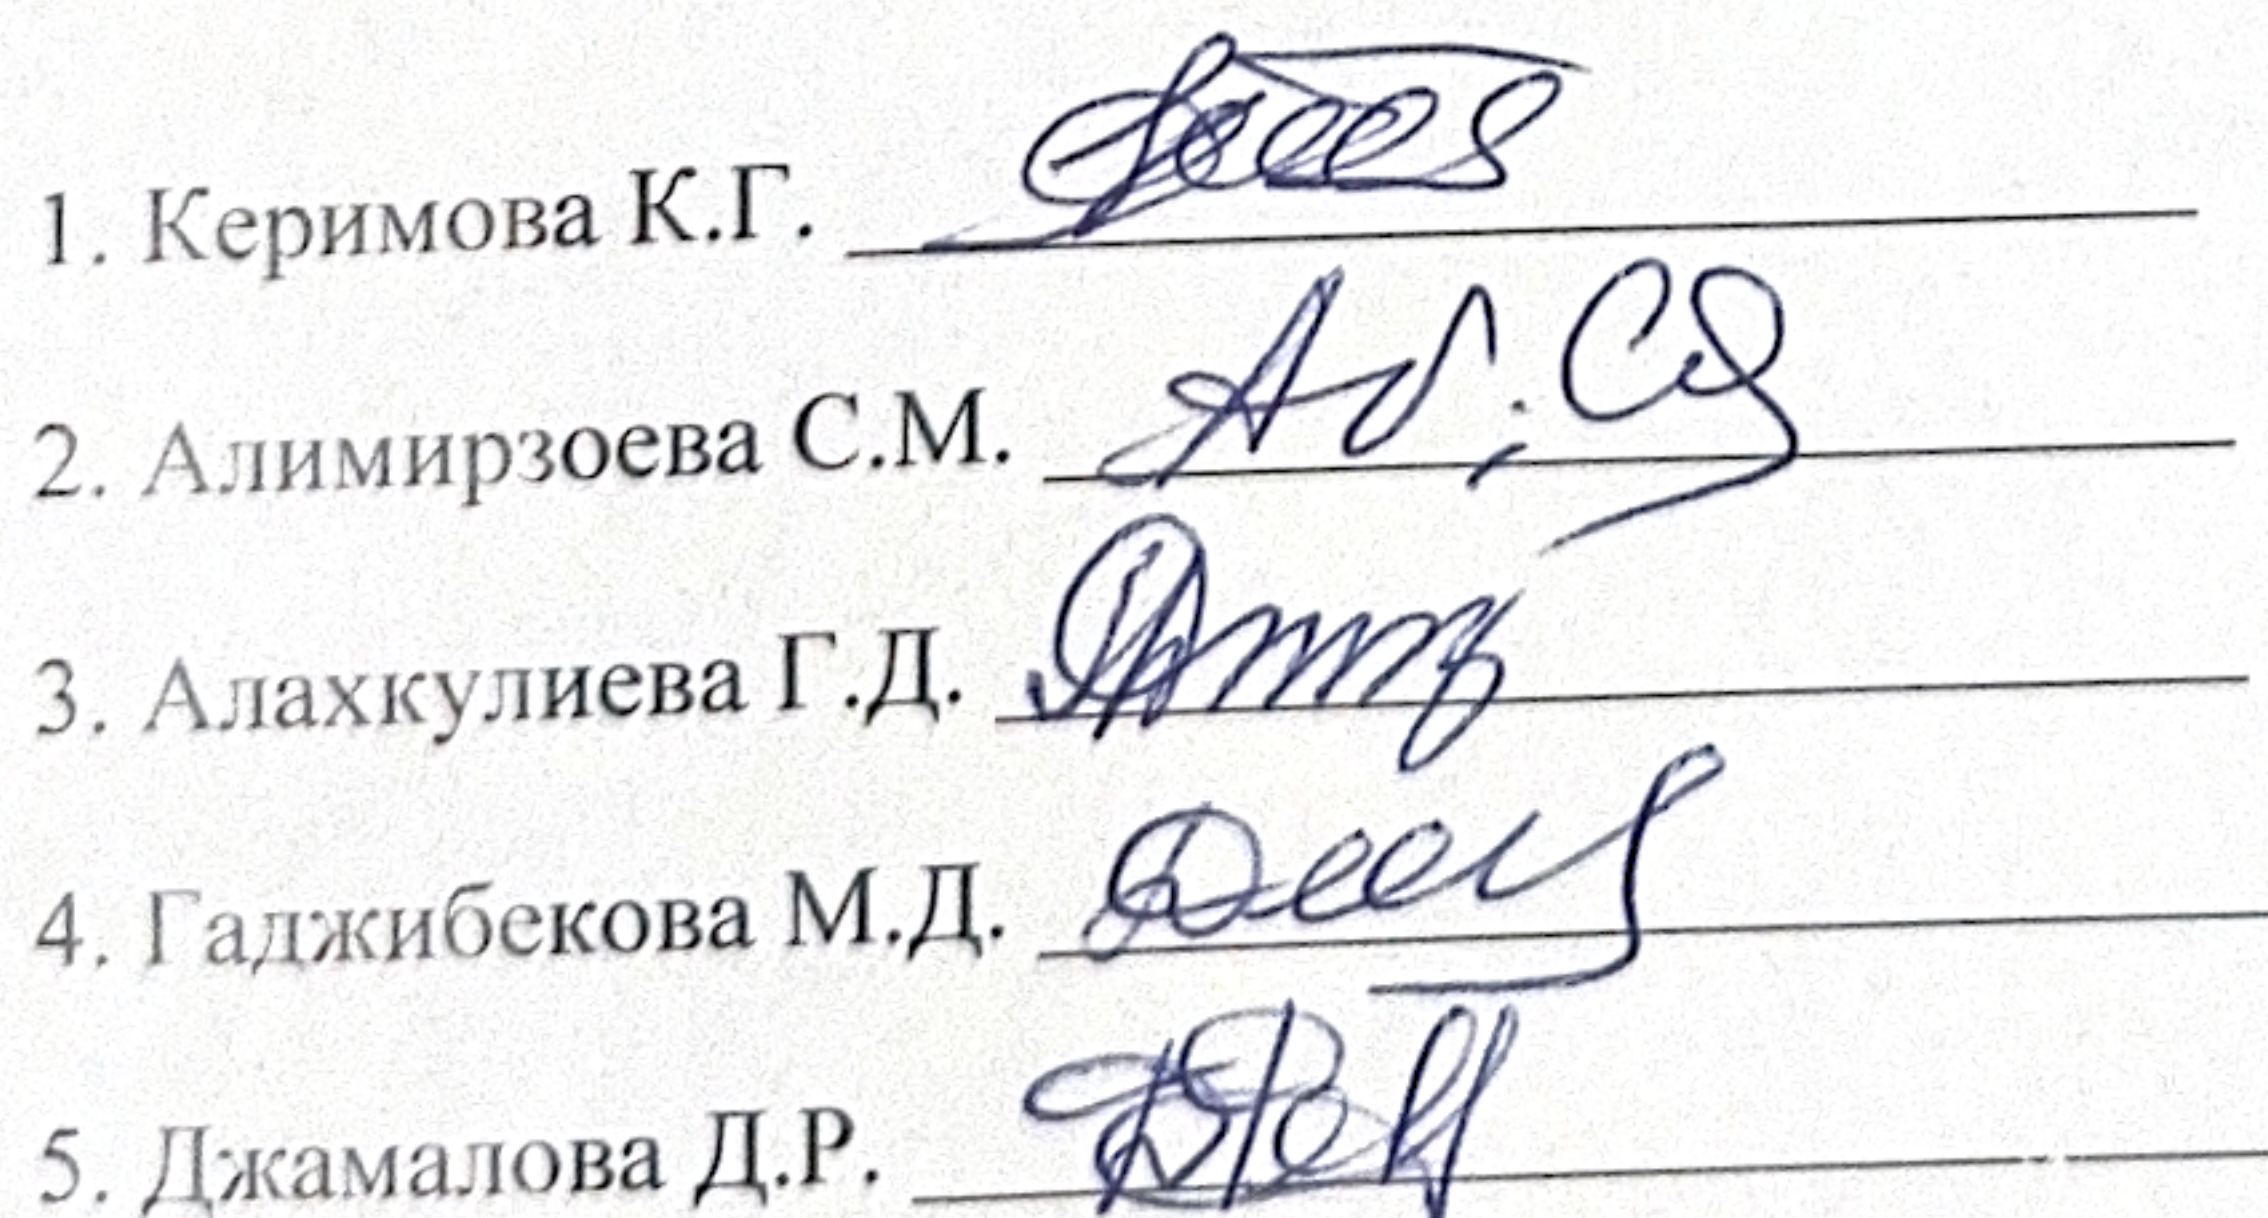 1. Керимова К.Г.
2. Алимирзоева С.М.
3. Алахкулиева Г.Д.
4. Гаджибекова М.Д.
5. Джамалова Д.Р.